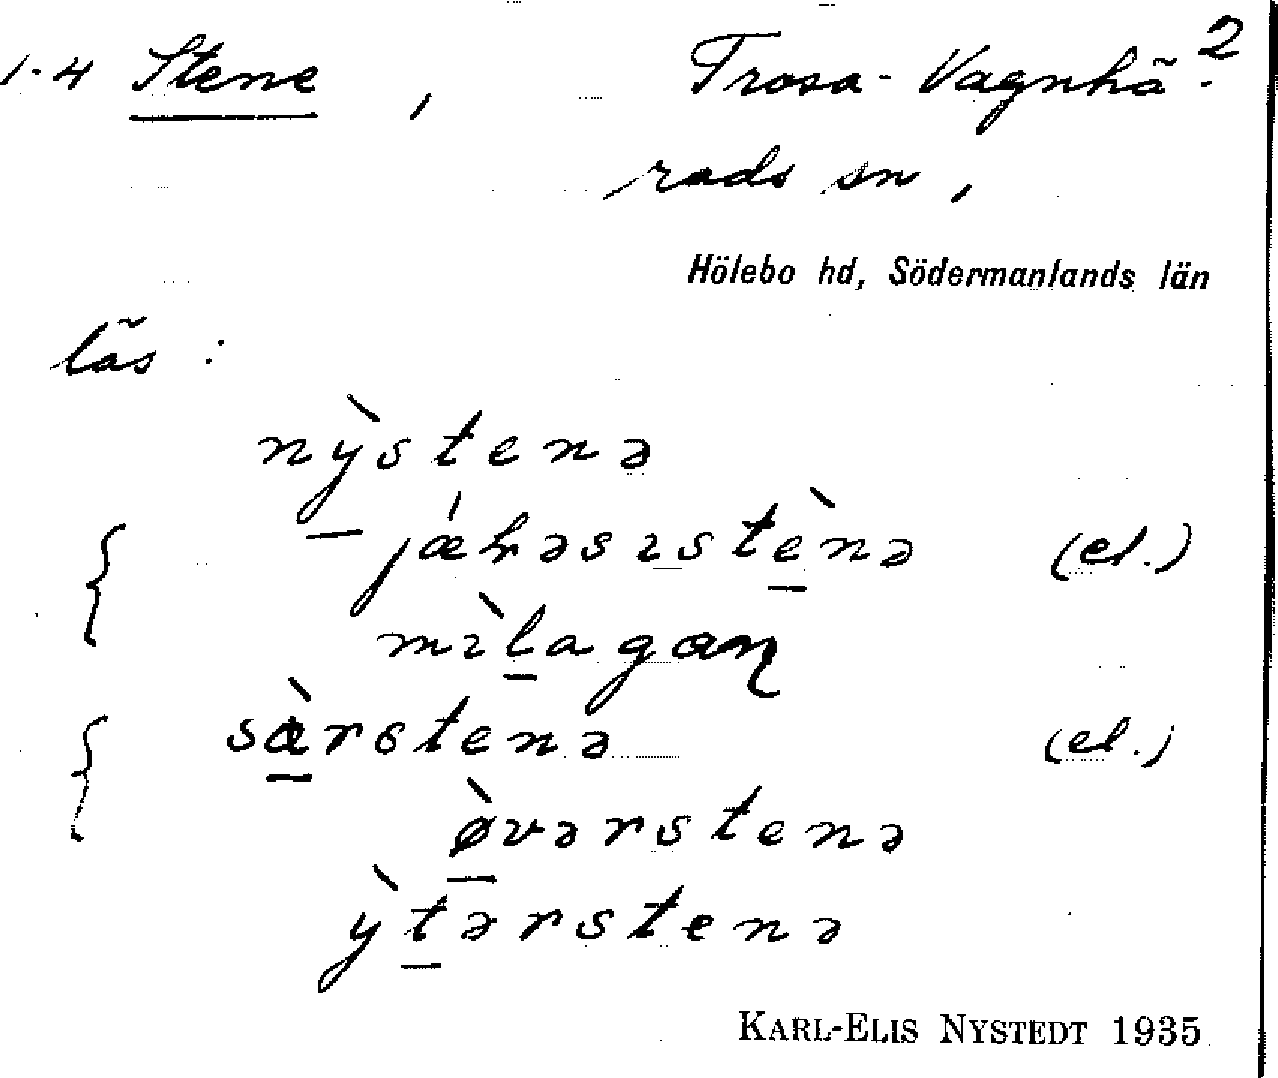 1-4 Stene , Trosa-Vagnhä- 2
rads sn ,
Hölebo hd, Södermanlands län
läs :
nỳstenə
{ jǽkəsɪstènə (el.)
mɪ̀lagaɳ
{ sæ̀rstenə (el.)
ø̀vərstenə
ỳtərstenə
KARL-ELIS NYSTEDT 1935